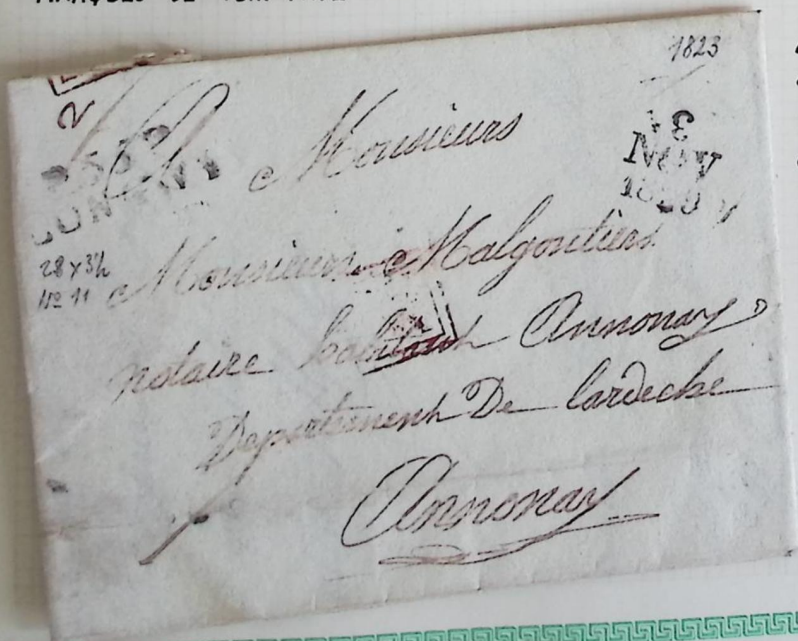 1823
2
NOV
28 x 3½
No 11
Monsieurs
Monsieurs Malgoutiers
notaire habitant Annonay
Departement De Lardeche
Annonay